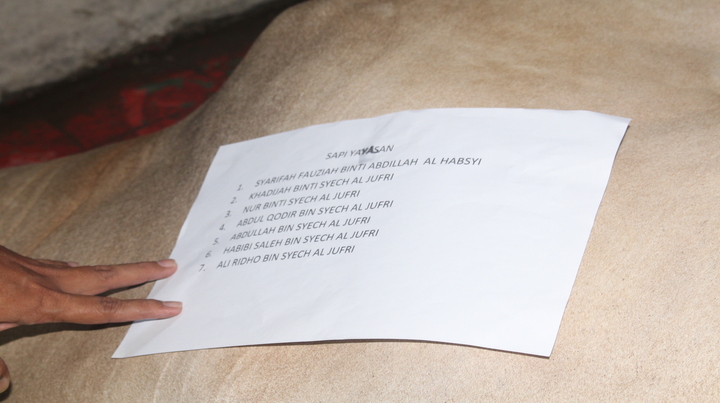 SAPI YAYASAN
1. SYARIFAH FAUZIAH BINTI ABDILLAH AL HABSYI
2. KHADIJAH BINTI SYECH AL JUFRI
3. NUR BINTI SYECH AL JUFRI
4. ABDUL QODIR BIN SYECH AL JUFRI
5. ABDULLAH BIN SYECH AL JUFRI
6. HABIBI SALEH BIN SYECH AL JUFRI
7. ALI RIDHO BIN SYECH AL JUFRI